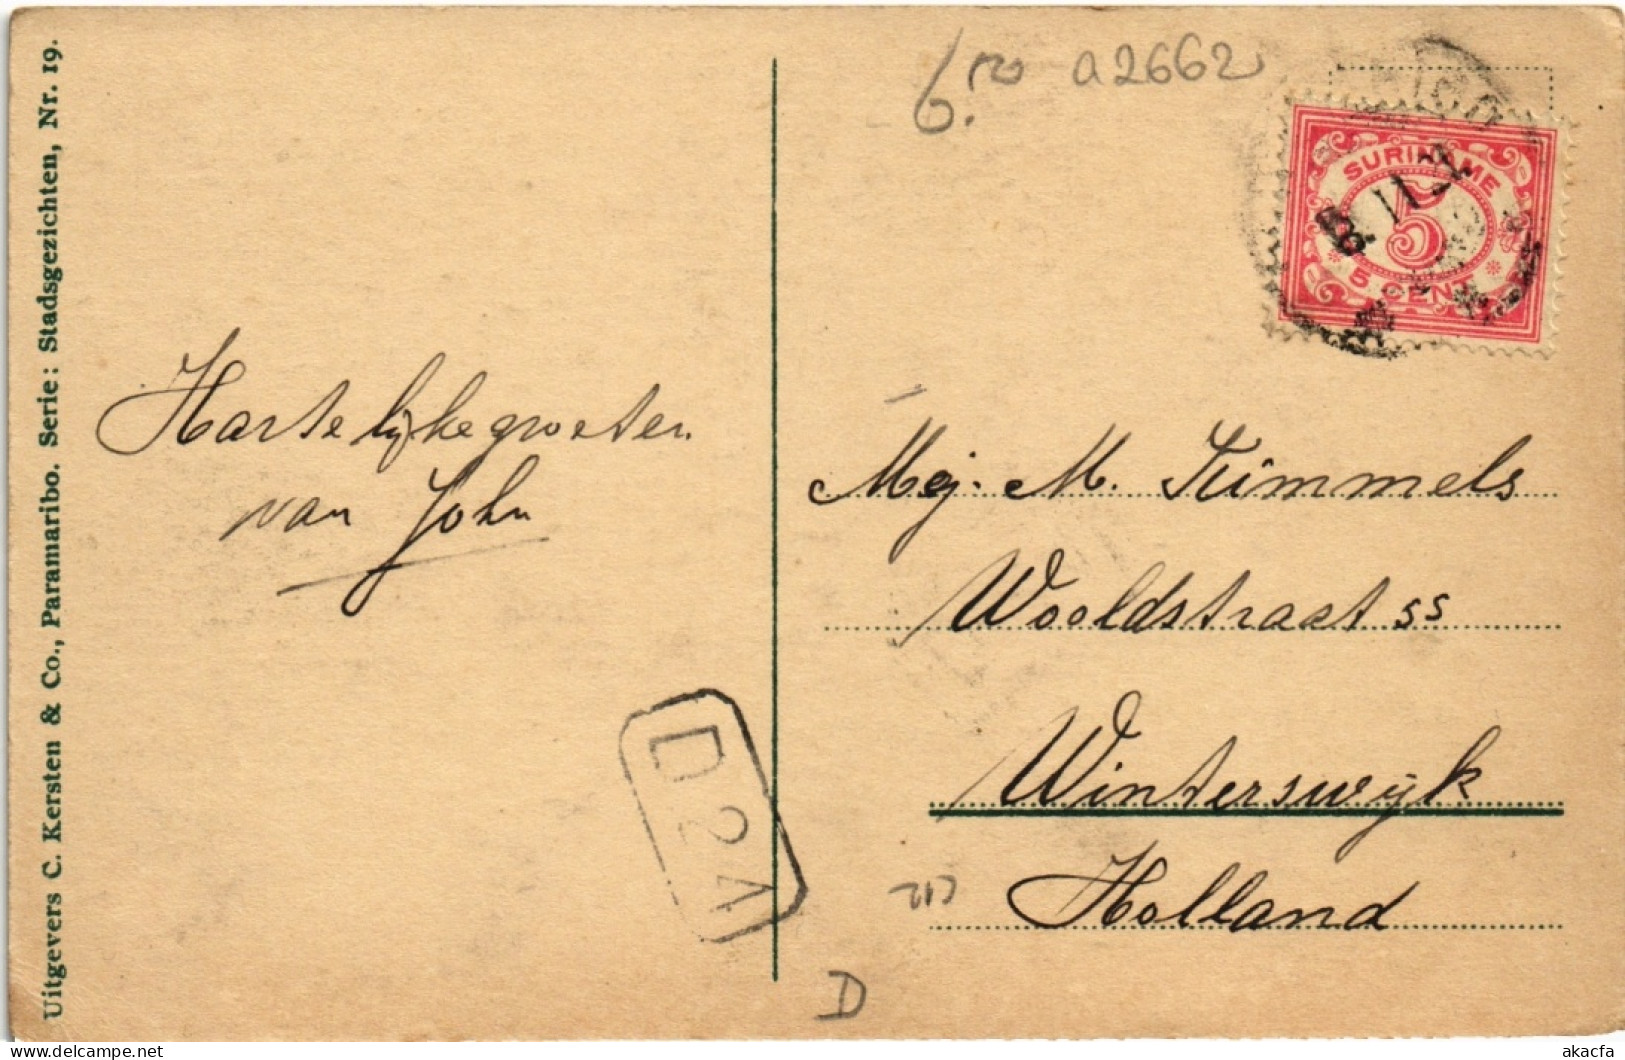 Uitgevers C. Kersten & Co., Paramaribo. Serie: Stadsgezichten, Nr. 19.
6.50 a2662
SURINAME
5
5 CENT
Hartelijke groeten
van John
Mej. M. Tümmels
Wooldstraat 55
Winterswijk
Holland
D2A
D
akacfa